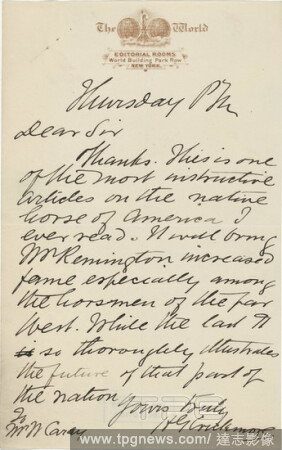 The World
EDITORIAL ROOMS
World Building Park Row
NEW YORK.
Thursday PM
Dear Sir
Thanks. This is one
of the most instructive
articles on the native
horse of America I
ever read. It will bring
Mr Remington increased
fame especially among
the horsemen of the far
West. While the last
is so thoroughly illustrates
the future of that part of
the nation
Yours truly
To
Mr W Carey
www.tpgnews.com/ 達志影像